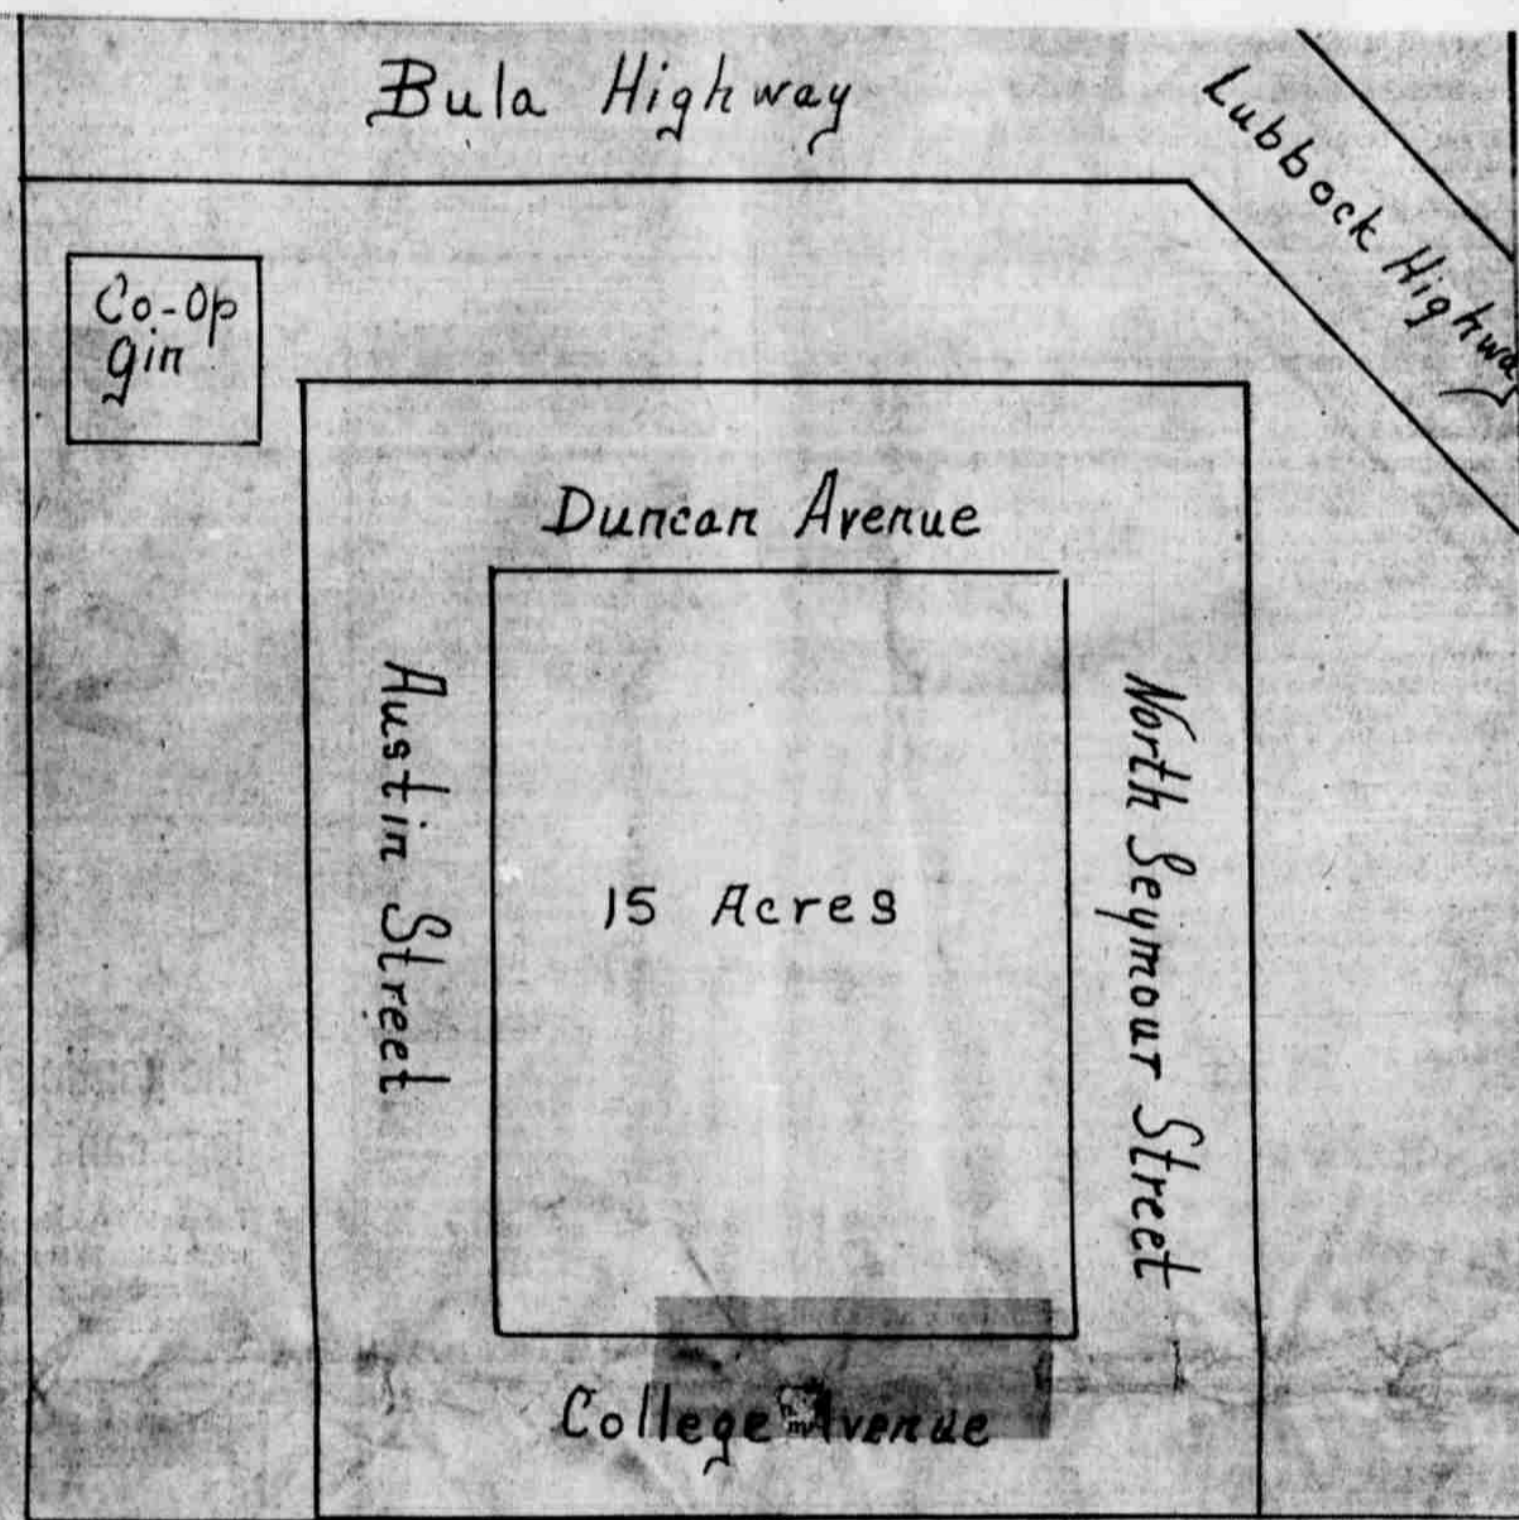 Bula Highway
Lubbock Highway
Co-Op
Gin
Duncan Avenue
Austin Street
15 Acres
North Seymour Street
College Avenue